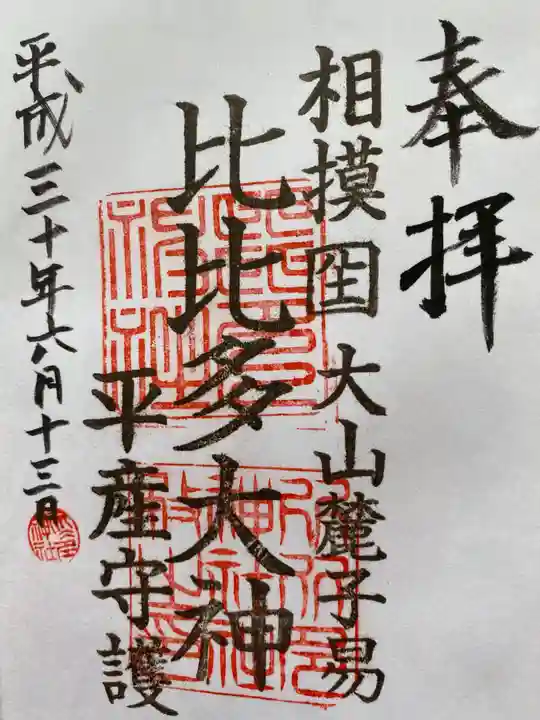 奉拝
相摸国大山麓子易
比比多大神
平産守護
平成三十年六月十三日